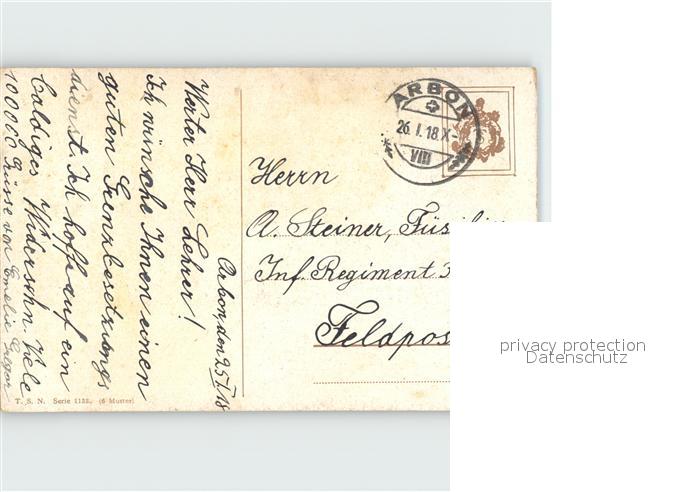 Arbon, den 25.I.18
Werter Herr Lehrer!
Ich wünsche Ihnen einen
guten Grenzbesetzungs
dienst. Ich hoffe auf ein
baldiges Widersehn. Viele
100000 Grüsse von Emilie
T. S. N. Serie 1188. (6 Muster)
ARBON
26. I. 18. X-
VIII
Herrn
A. Steiner, Füsilier
Inf. Regiment 3
Feldpos
privacy protection
Datenschutz